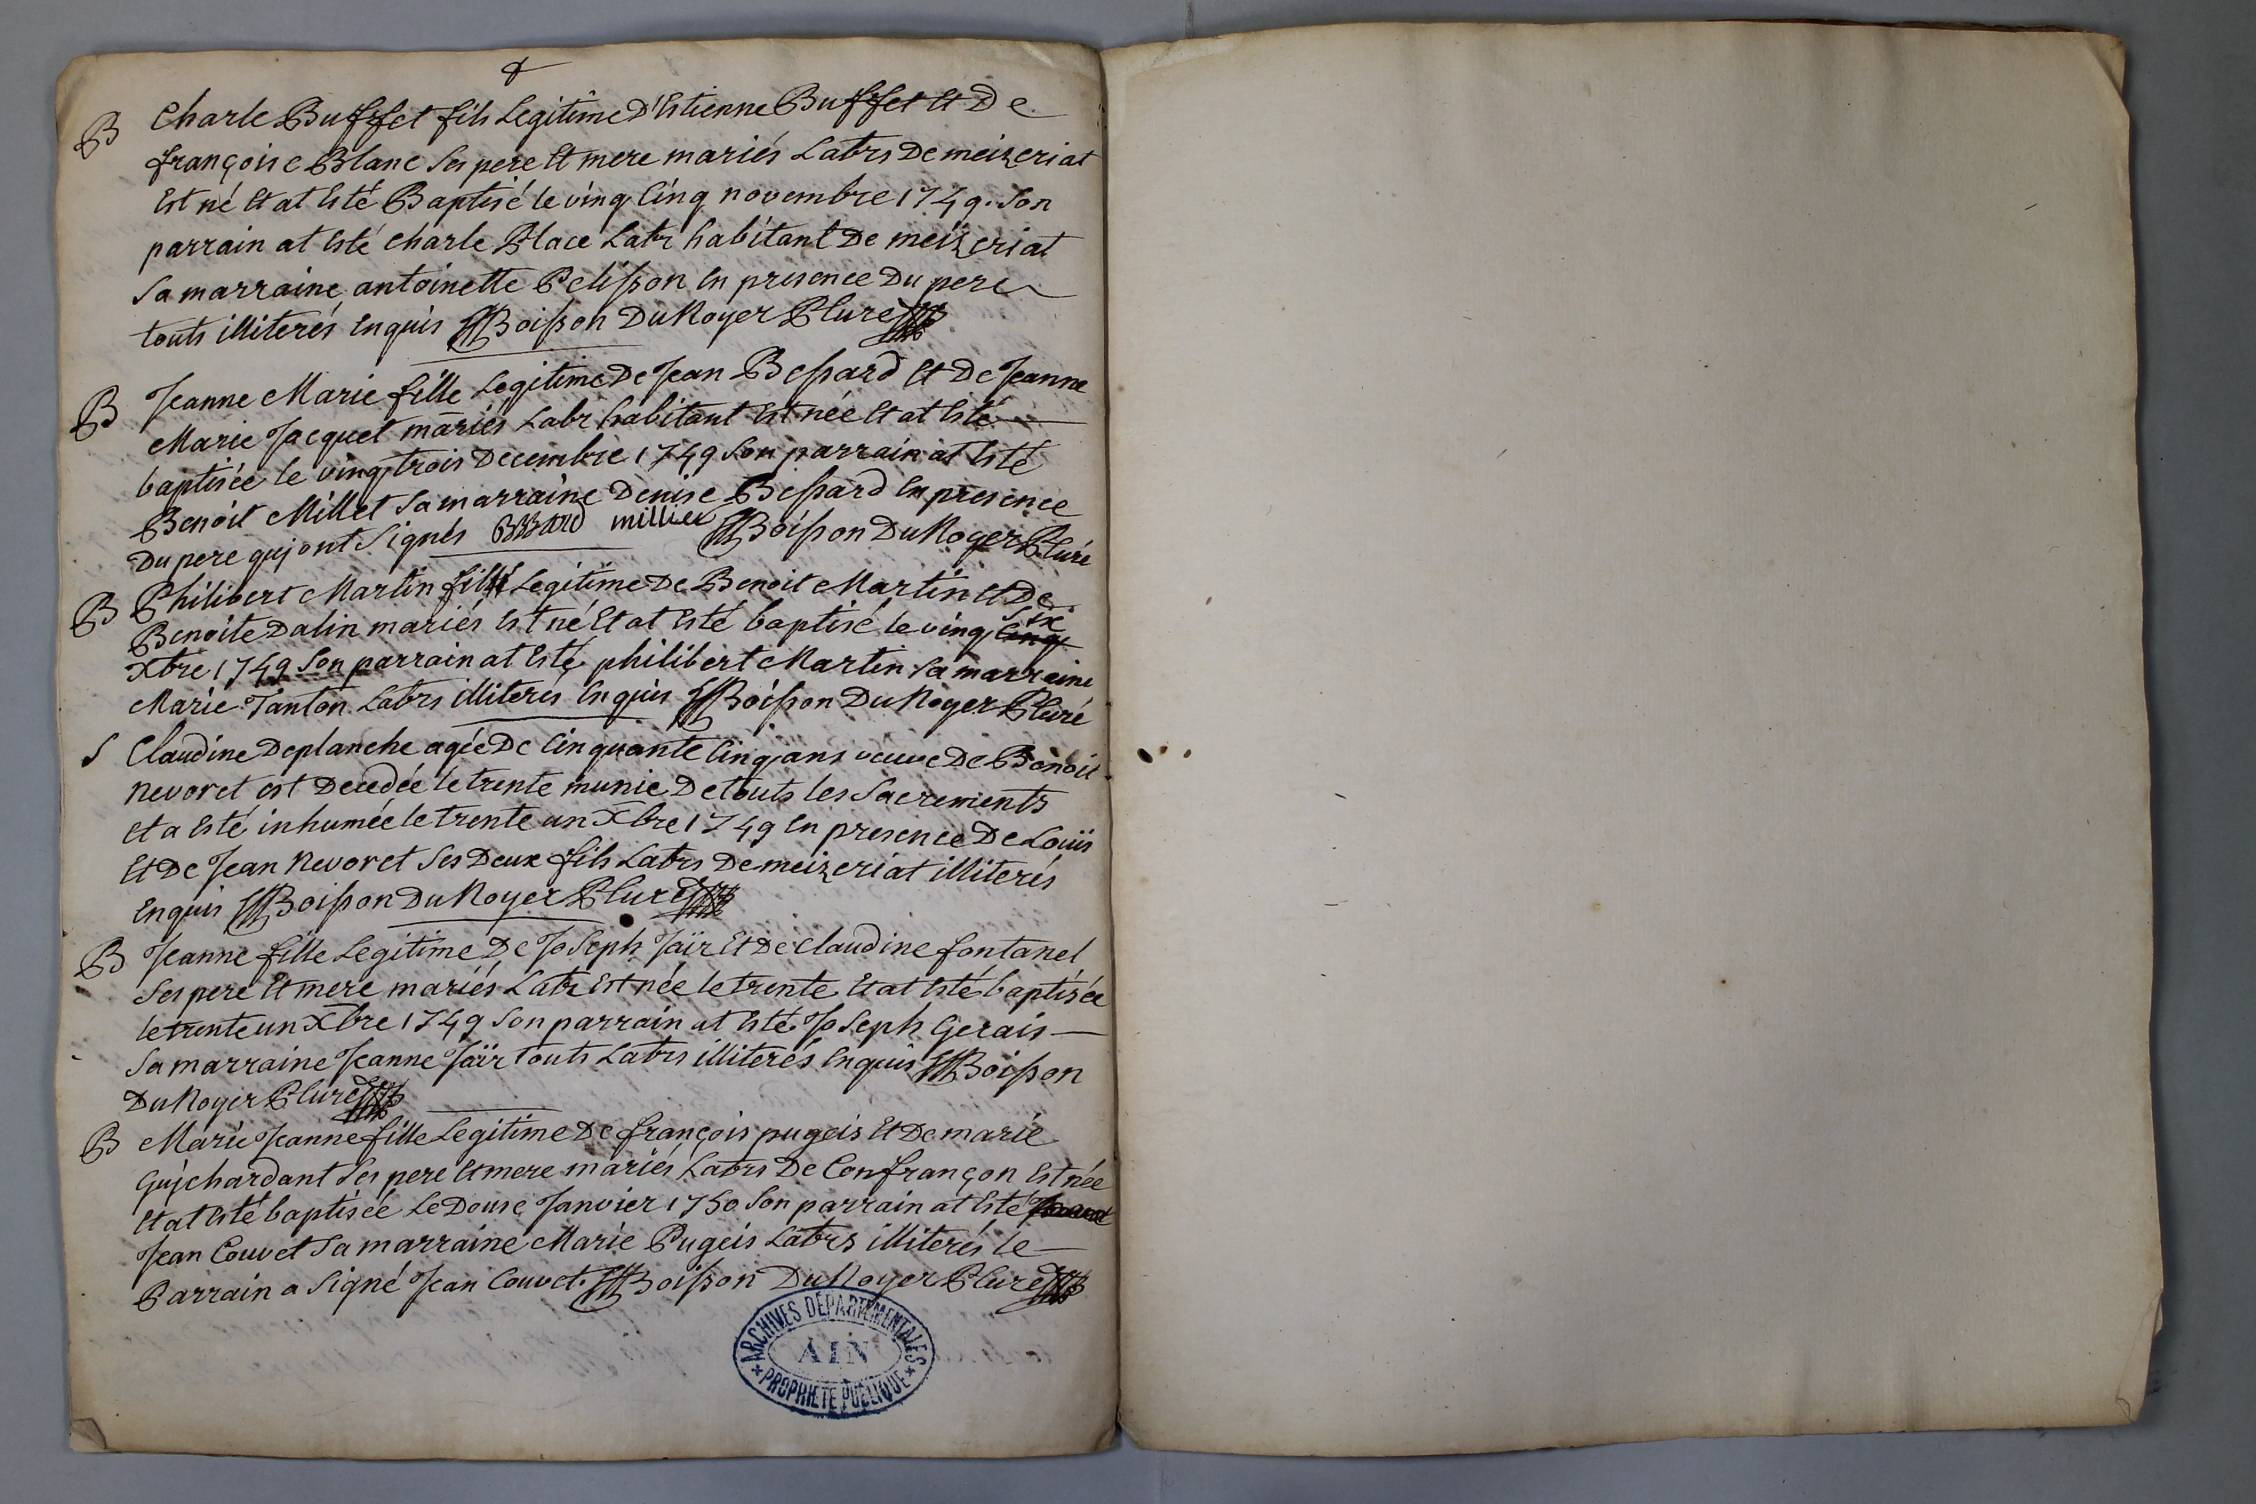 B Charle Buffet fils Legitime D'Estienne Buffet Et De
françoise Blanc Ses pere Et mere mariés Labrs De meizeriat
Est né Et at Esté Baptisé le vingt Cinq novembre 1749. Son
parrain at Esté charle Place Labr habitant De meizeriat
Sa marraine antoinette Pelisson En presence Du pere
touts illiterés Enquis Boisson DuNoyer P Curé
B Jeanne Marie fille Legitime De Jean Bessard Et De Jeanne
Marie Jacquet mariés Labr habitant Est née Et at Esté
baptisée le vingttrois Decembre 1749 Son parrain at Esté
Benoit Millet Sa marraine Denise Bessard En presence
Du pere qui ont Signés millier Boisson DuNoyer P Curé
B Philibert Martin fils Legitime De Benoit Martin Et De
Benoite Dalin mariés Est né Et at Esté baptisé le vingt Cinq Six
Xbre 1749 Son parrain at Esté philibert Martin Sa marraine
Marie Tanton Labrs illiterés Enquis Boisson DuNoyer P Curé
S Claudine Deplanche agée De Cinquante Cinq ans veuve De Benoit
Nevoret est Decedée le trente munie De touts les Sacrements
et a Esté inhumée le trente un Xbre 1749 En presence De Louïs
Et De Jean Nevoret Ses Deux fils Labrs De meizeriat illiterés
Enquis Boisson DuNoyer P Curé
B Jeanne fille Legitime De Joseph Jaïr Et De Claudine fontanel
Ses pere Et mere mariés Labr Est née le trente Et at Esté baptisée
le trente un Xbre 1749 Son parrain at Esté Joseph Gerais
Sa marraine Jeanne Jaïr touts Labrs illiterés Enquis Boisson
DuNoyer P Curé
B Marie Jeanne fille Legitime De françois pugeis Et De marie
Guychardant Ses pere Et mere mariés Labrs De Confrançon Est née
Et at Esté baptisée Le Douse Janvier 1750 Son parrain at Esté
Jean Couvet Sa marraine Marie Pugeis Labrs illiterés le
Parrain a Signé Jean Couvet. Boisson DuNoyer P Curé
ARCHIVES DÉPARTEMENTALES
AIN
PROPRIÉTÉ PUBLIQUE